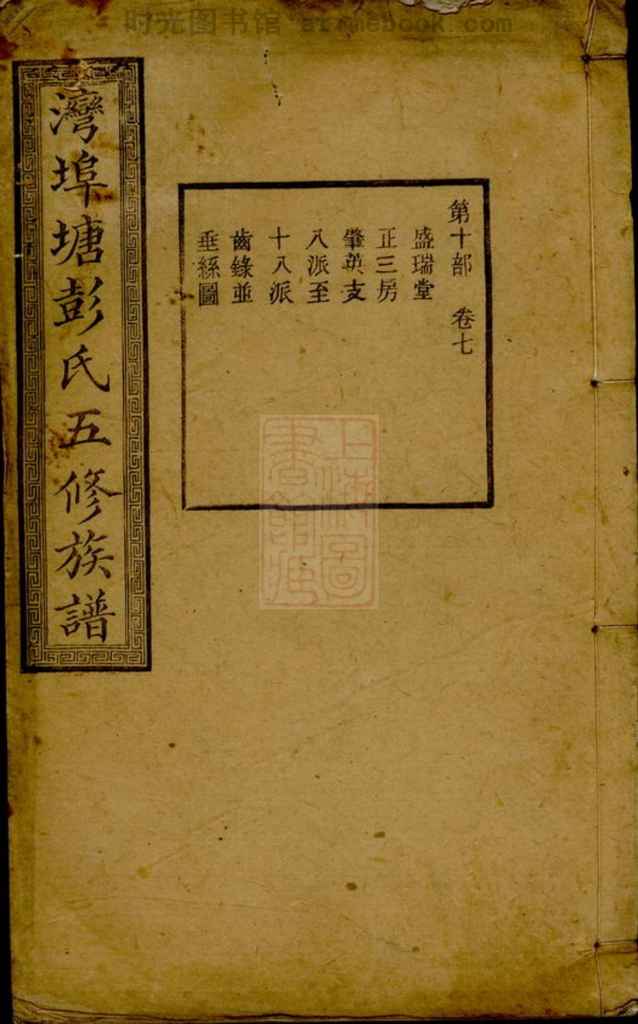 时光图书馆
灣埠塘彭氏五修族譜
第十部 卷七
盛瑞堂
正三房
肇英支
八派至
十八派
齒錄並
垂絲圖
上海圖書館藏